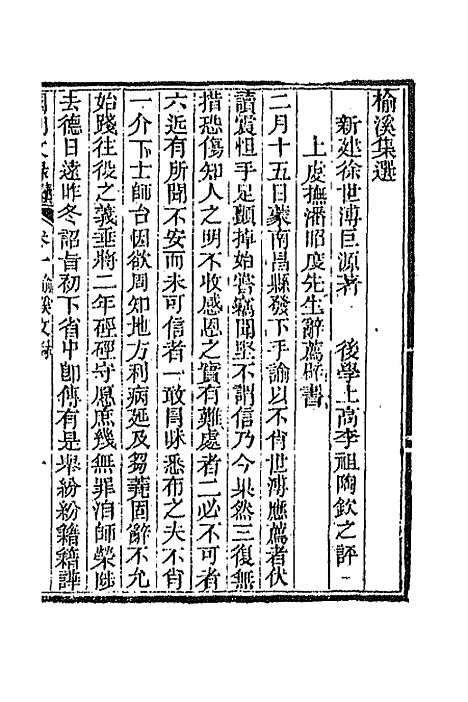 榆溪集選
新建徐世溥巨源著　後學上高李祖陶欽之評
上虔撫潘昭度先生辭薦辟書
二月十五日蒙南昌縣發下手諭以不肖世溥應薦者伏
讀震怛手足顫掉始嘗竊聞堅不謂信乃今果然三復無
措恐傷知人之明不收感恩之實有難處者二必不可者
六远有所聞不安而未可信者一敢冐昧悉布之夫不肖
一介下士師台因欲周知地方利病延及芻蕘固辭不允
始踐往役之義垂將二年硜硜守愿庶幾無罪洎師榮陟
去德日遠昨冬詔旨初下省中即傳有是舉紛紛籍籍譁
國朝文錄　卷一　榆溪文錄　一